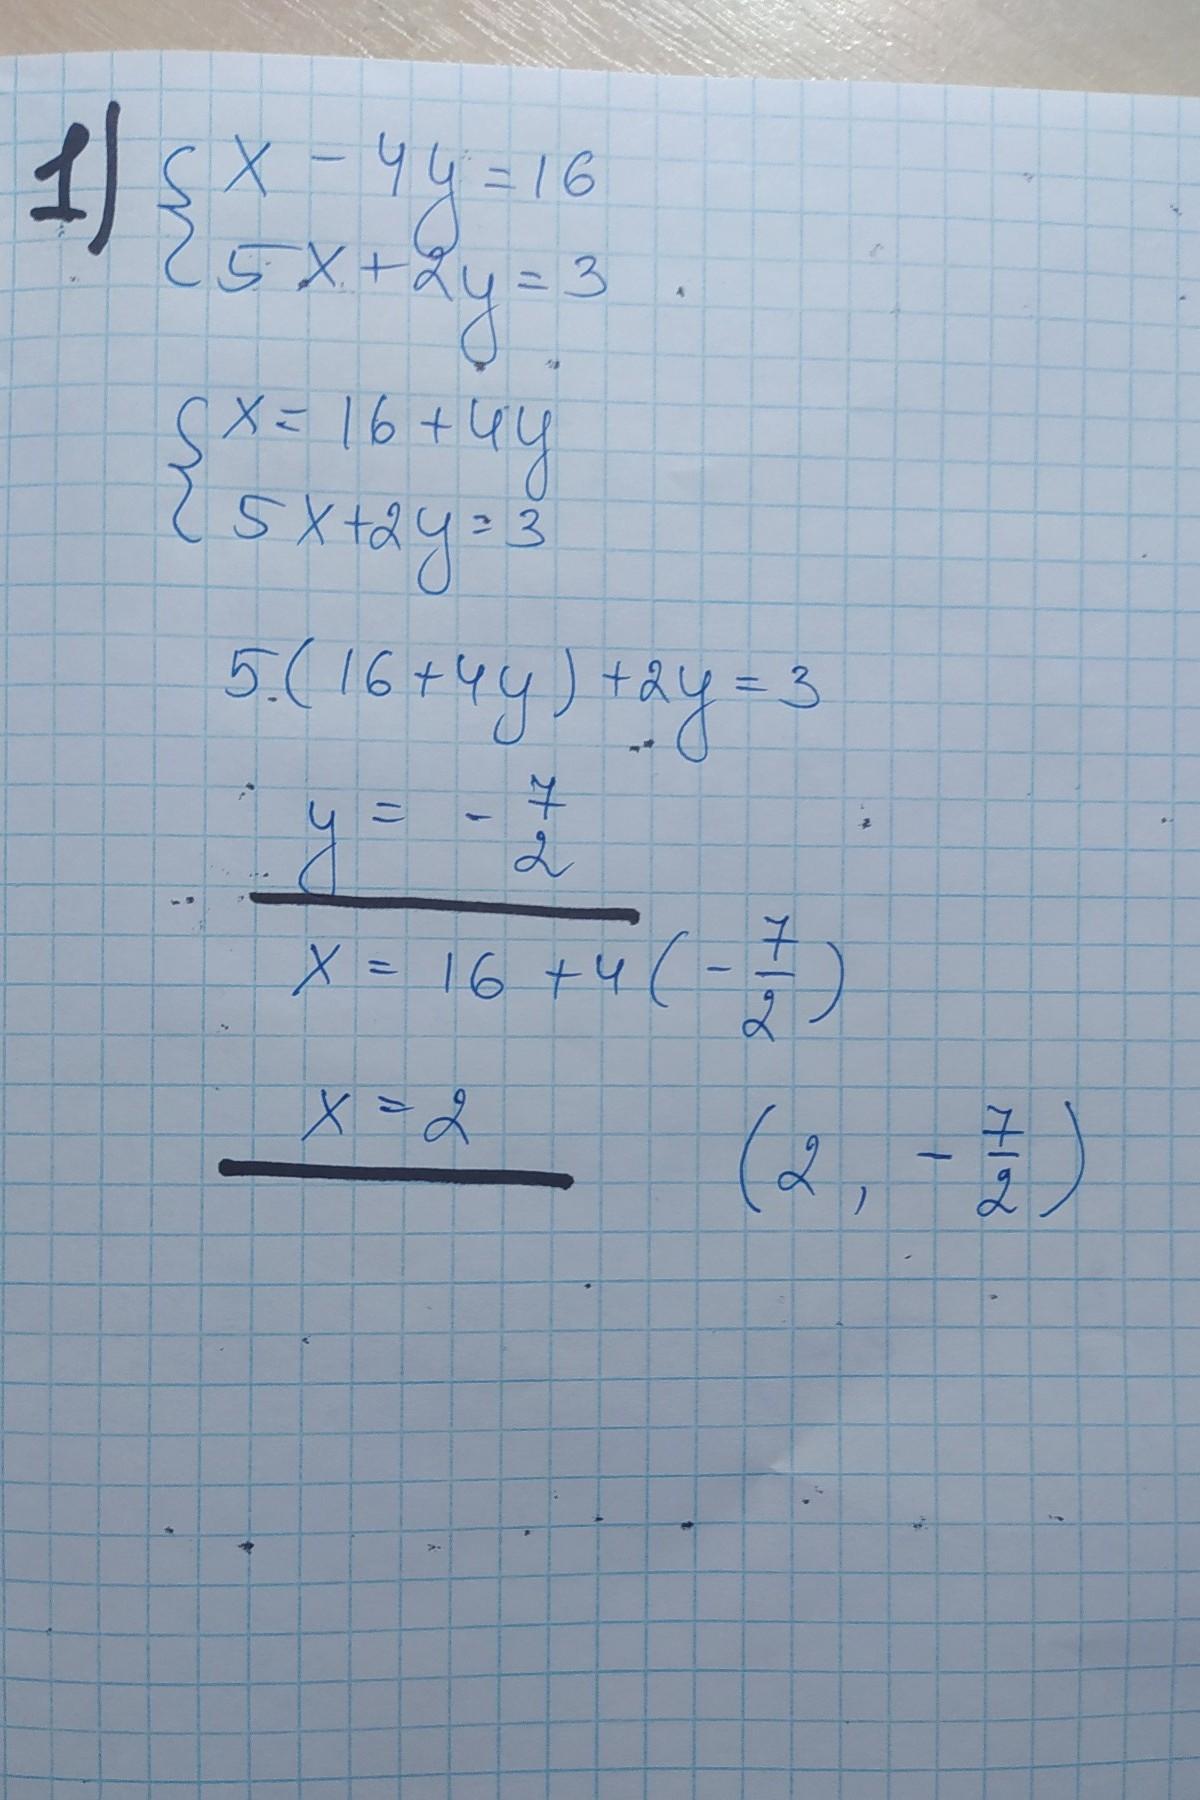 1) { x - 4y = 16
5x + 2y = 3
{ x = 16 + 4y
5x + 2y = 3
5.(16 + 4y) + 2y = 3
y = - 7/2
x = 16 + 4(- 7/2)
x = 2
(2, - 7/2)